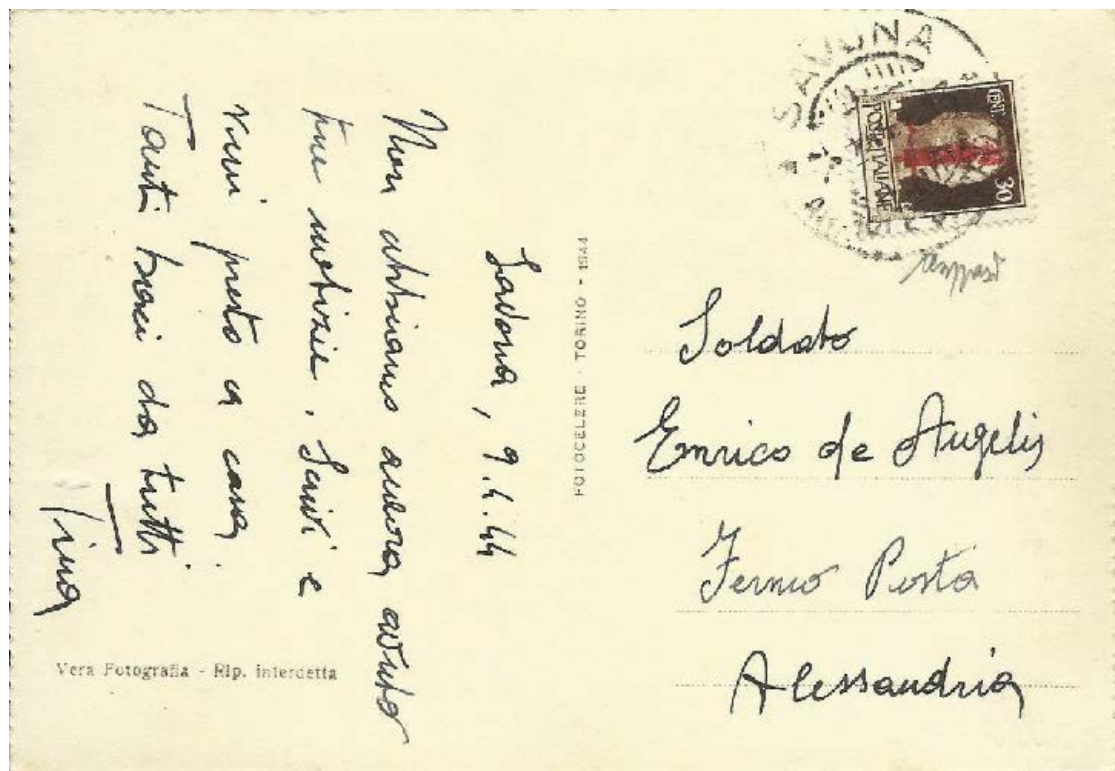 Savona, 9.4.44
Non abbiamo ancora avuto
tue notizie. Scrivi e
vieni presto a casa.
Tanti baci da tutti
Tina
Vera Fotografia - Rip. interdetta
FOTOCELERE - TORINO - 1944
SAVONA
CENT. 30
POSTE ITALIANE
Soldato
Enrico de Angelis
Fermo Posta
Alessandria